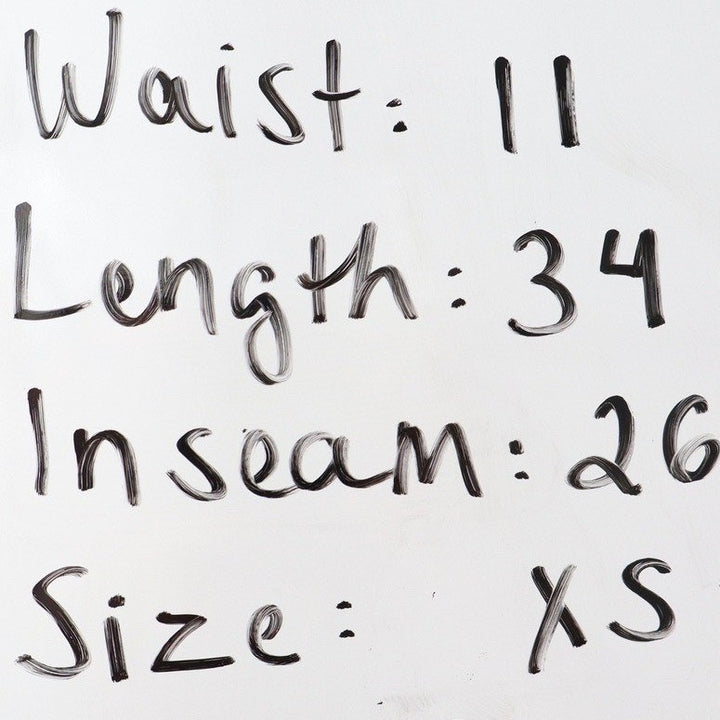 Waist: 11
Length: 34
Inseam: 26
Size: XS